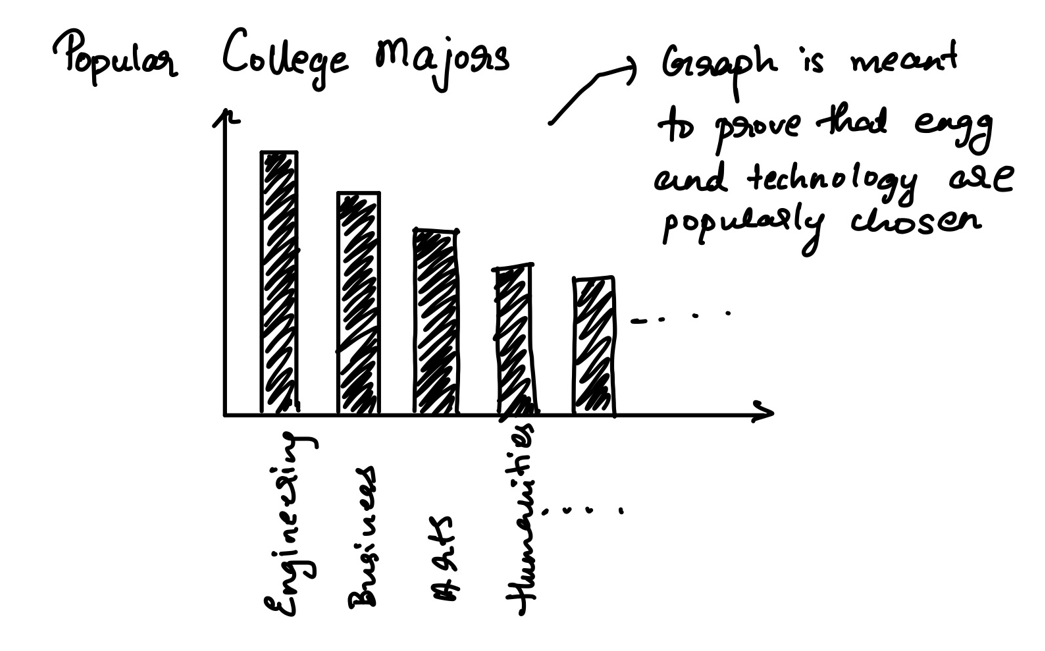 Popular College Majors
Graph is meant
to prove that engg
and technology are
popularly chosen
Engineering
Business
Arts
Humanities